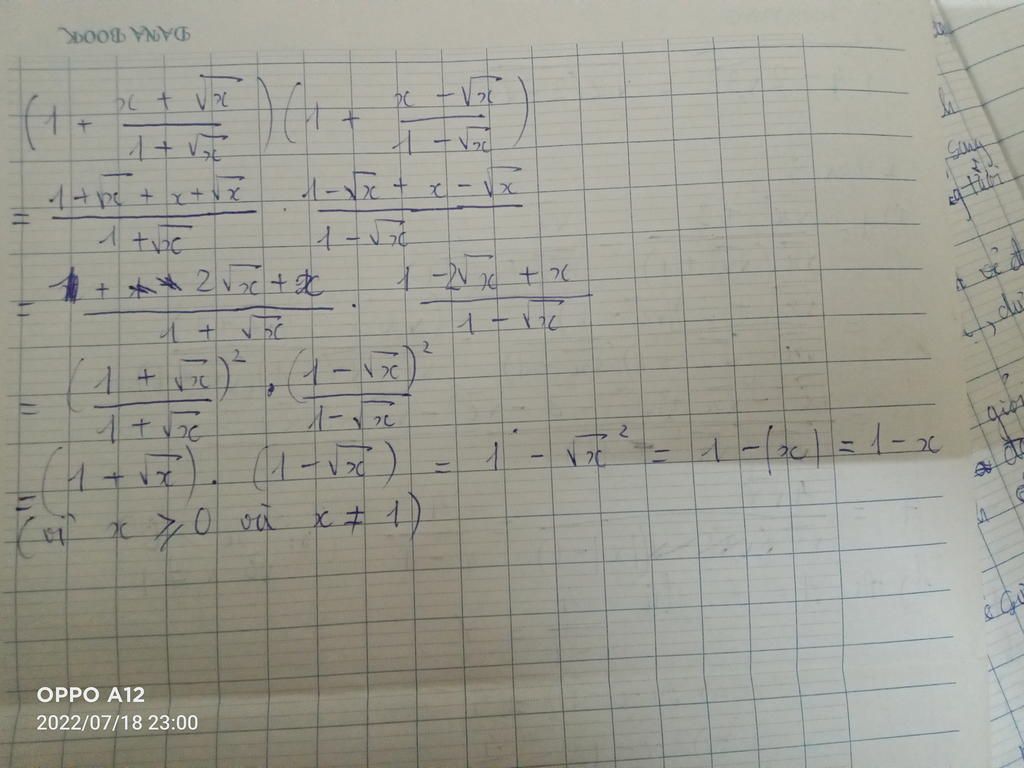 DANA BOOK
(1 + (x + √x)/(1 + √x)) (1 + (x - √x)/(1 - √x))
= (1 + √x + x + √x)/(1 + √x) . (1 - √x + x - √x)/(1 - √x)
= (1 + 2√x + x)/(1 + √x) . (1 - 2√x + x)/(1 - √x)
= (1 + √x)²/(1 + √x) . (1 - √x)²/(1 - √x)
= (1 + √x) . (1 - √x) = 1 - √x² = 1 - (x) = 1 - x
(vì x ≥ 0 và x ≠ 1)
OPPO A12
2022/07/18 23:00